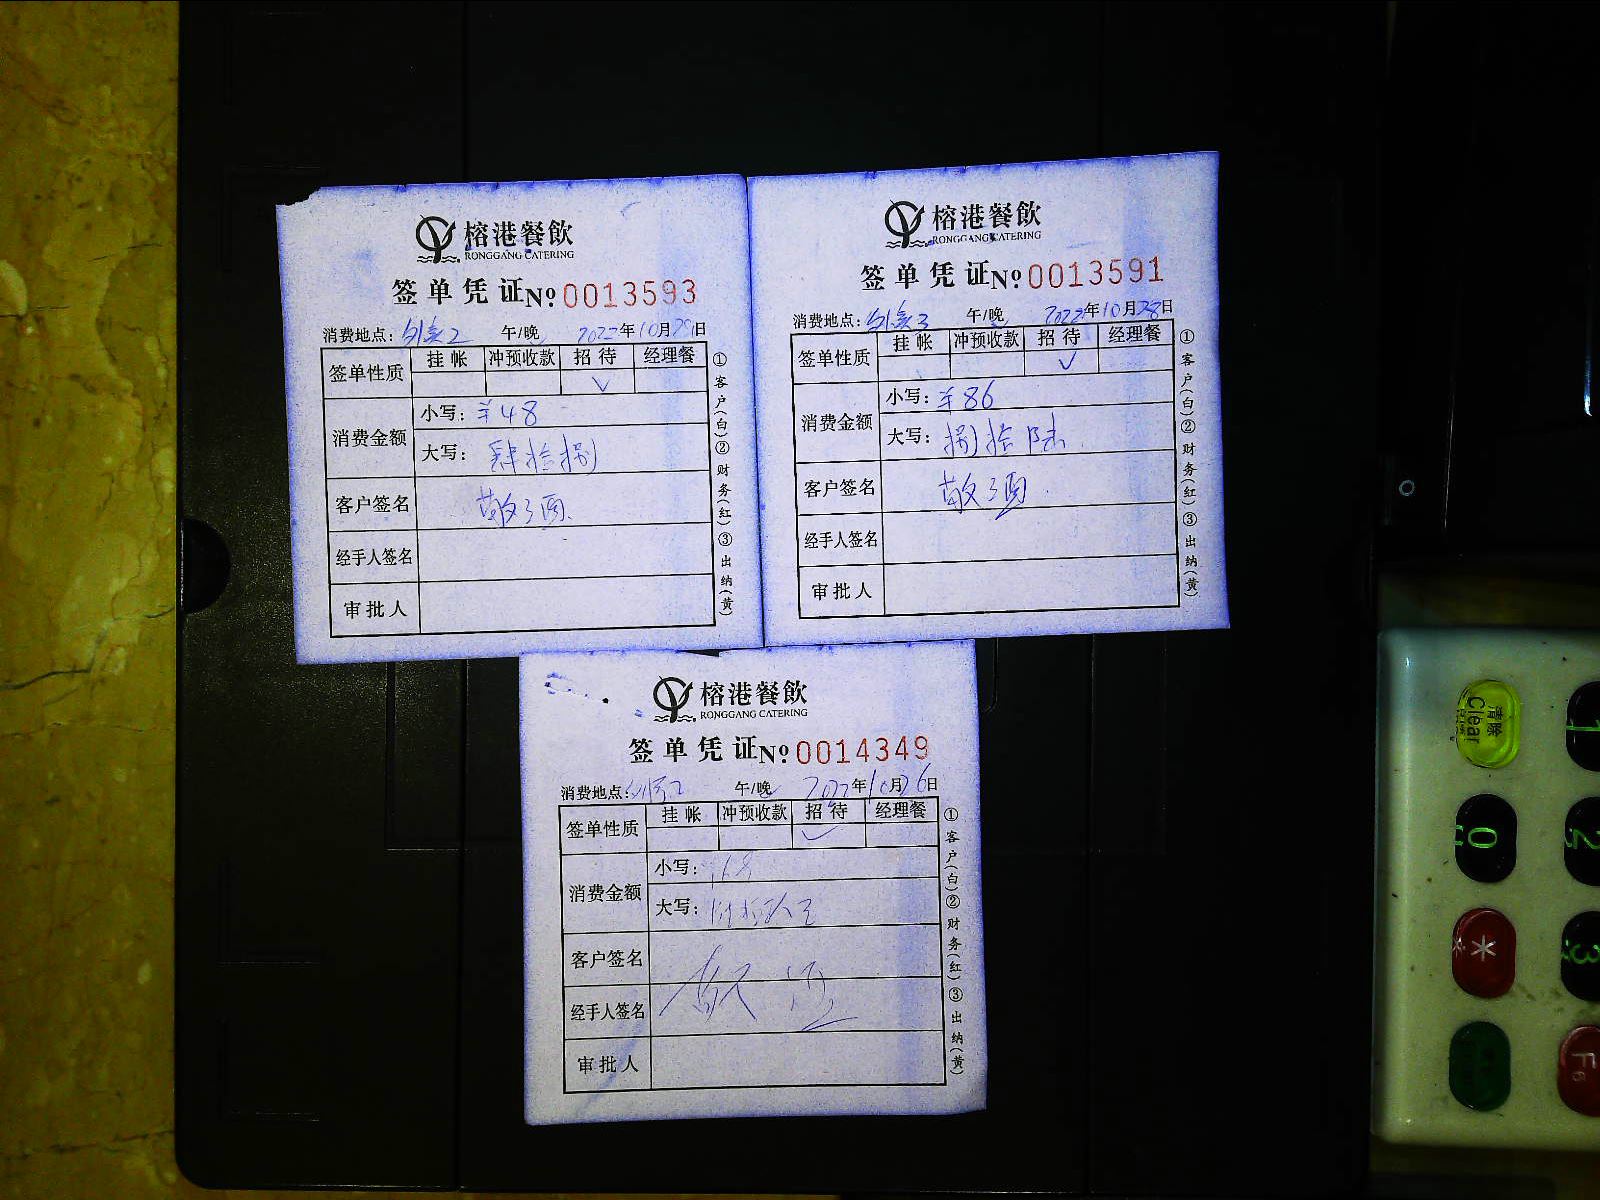 榕港餐飲
RONGGANG CATERING
签单凭证 № 0013593
消费地点: 2 午/晚 2022年10月29日
签单性质 挂帐 冲预收款 招待 经理餐
✓
消费金额 小写: ¥48
大写: 肆拾捌
客户签名 敬酒
经手人签名
审批人
①客户(白)②财务(红)③出纳(黄)
榕港餐飲
RONGGANG CATERING
签单凭证 № 0013591
消费地点: 3 午/晚 2022年10月28日
签单性质 挂帐 冲预收款 招待 经理餐
✓
消费金额 小写: ¥86
大写: 捌拾陆
客户签名 敬酒
经手人签名
审批人
①客户(白)②财务(红)③出纳(黄)
榕港餐飲
RONGGANG CATERING
签单凭证 № 0014349
消费地点: 午/晚 2022年10月26日
签单性质 挂帐 冲预收款 招待 经理餐
✓
消费金额 小写:
大写:
客户签名
经手人签名 敬酒
审批人
①客户(白)②财务(红)③出纳(黄)
清除
Clear
0
*
1
2
3
F6